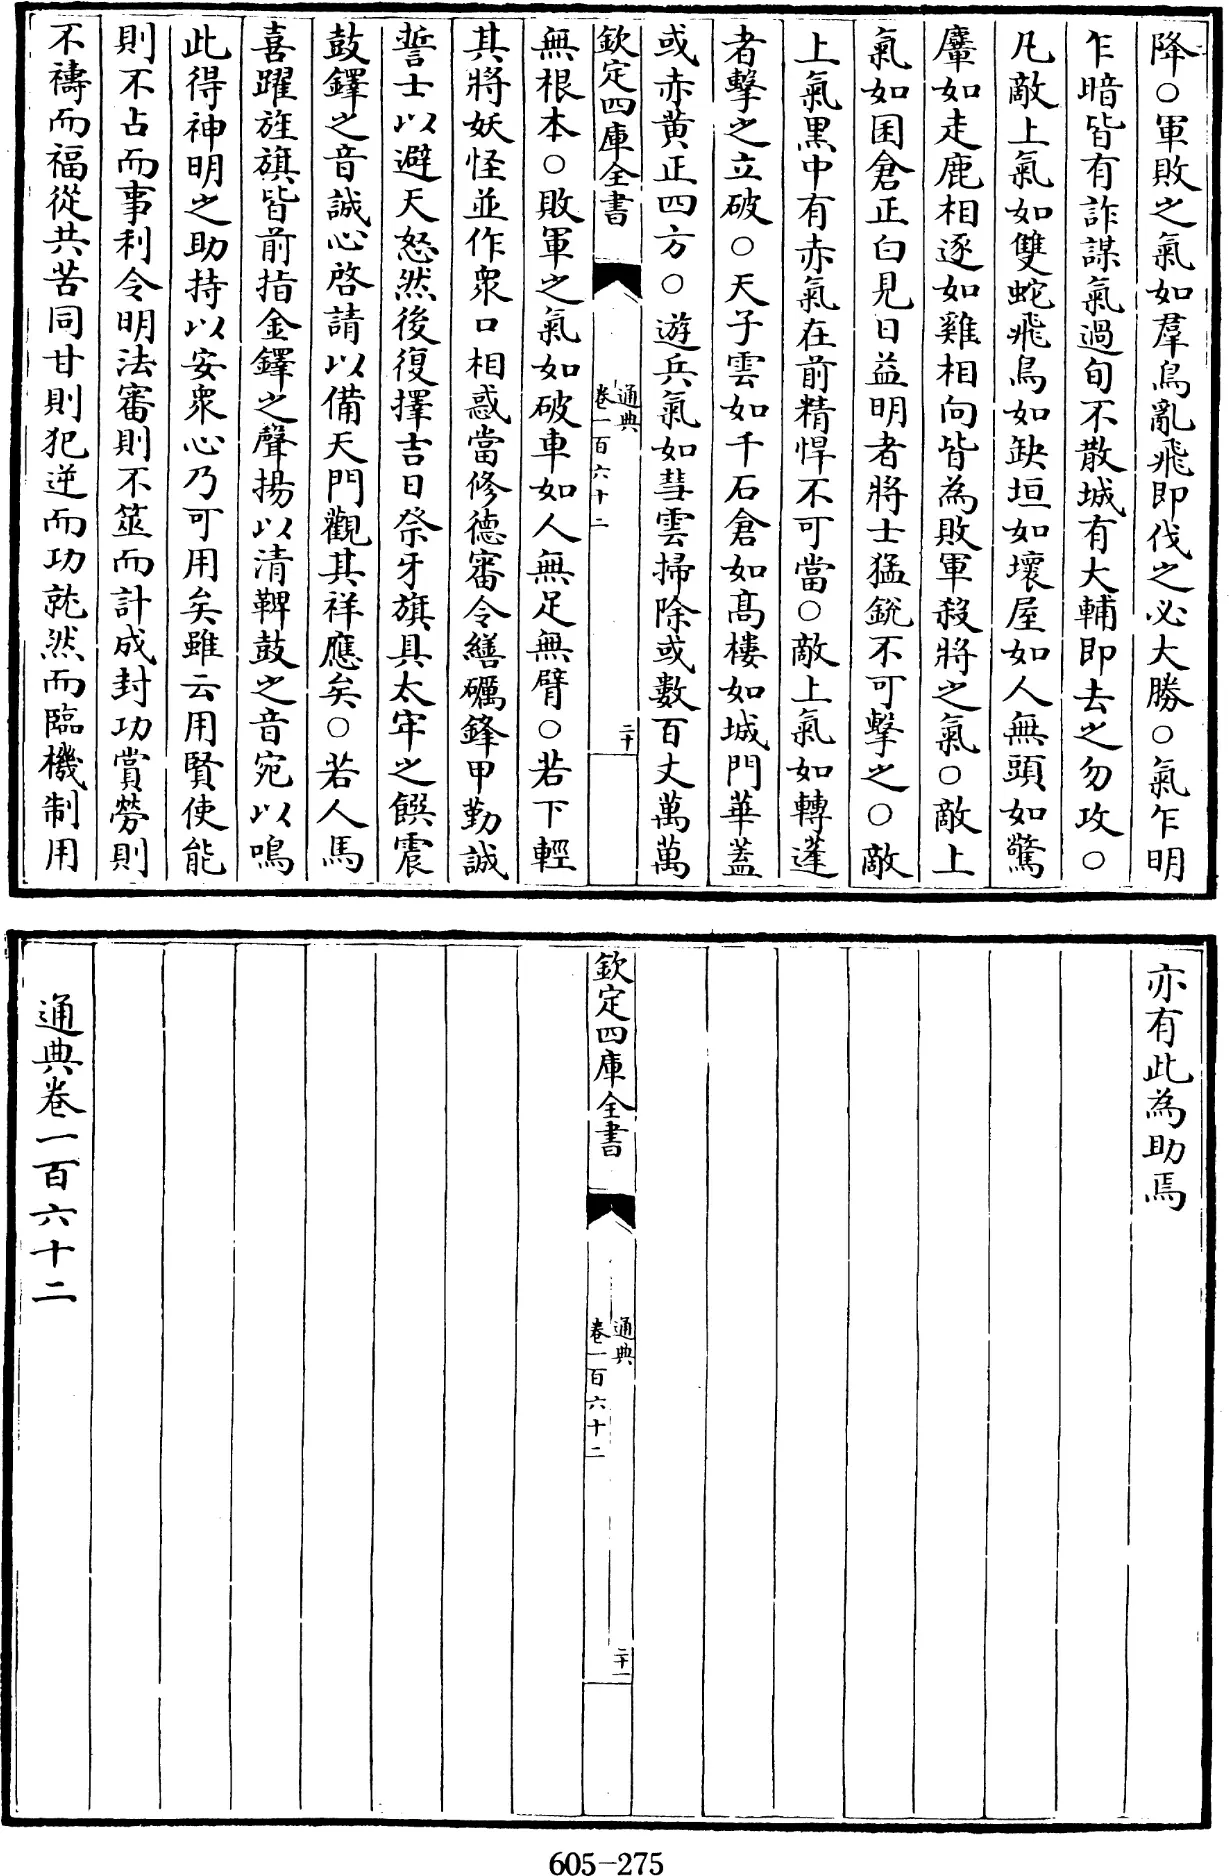 降○軍敗之氣如羣鳥亂飛即伐之必大勝○氣乍明
乍暗皆有詐謀氣過旬不散城有大輔即去之勿攻○
凡敵上氣如雙蛇飛鳥如缺垣如壞屋如人無頭如驚
麞如走鹿相逐如雞相向皆為敗軍殺將之氣○敵上
氣如囷倉正白見日益明者將士猛銳不可擊之○敵
上氣黑中有赤氣在前精悍不可當○敵上氣如轉蓬
者擊之立破○天子雲如千石倉如高樓如城門華蓋
或赤黃正四方○遊兵氣如彗雲掃除或數百丈萬萬
欽定四庫全書
通典
卷一百六十二
二十
無根本○敗軍之氣如破車如人無足無臂○若下輕
其將妖怪並作衆口相惑當修德審令繕礪鋒甲勤誠
誓士以避天怒然後復擇吉日祭牙旗具太牢之饌震
鼓鐸之音誠心啓請以備天門觀其祥應矣○若人馬
喜躍旌旗皆前指金鐸之聲揚以清鞞鼓之音宛以鳴
此得神明之助持以安衆心乃可用矣雖云用賢使能
則不占而事利令明法審則不筮而計成封功賞勞則
不禱而福從共苦同甘則犯逆而功就然而臨機制用
亦有此為助焉
欽定四庫全書
通典
卷一百六十二
二十一
通典卷一百六十二
605-275